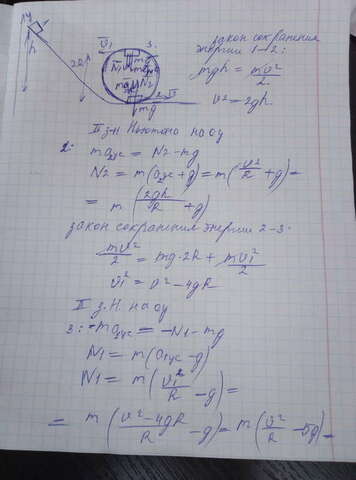 закон сохранения
энергии 1-2:
mgh = mv²/2
v² = 2gh
II з-н Ньютона на оу
2: ma₂цс = N2 - mg
N2 = m(aцс + g) = m(v²/R + g) =
= m(2gh/R + g)
закон сохранения энергии 2-3:
mv²/2 = mg·2R + mv₁²/2
v₁² = v² - 4gR
II з.Н. на оу
3: -maцс = -N1 - mg
N1 = m(aцс - g)
N1 = m(v₁²/R - g) =
= m(v² - 4gR/R - g) = m(v²/R - 5g) =